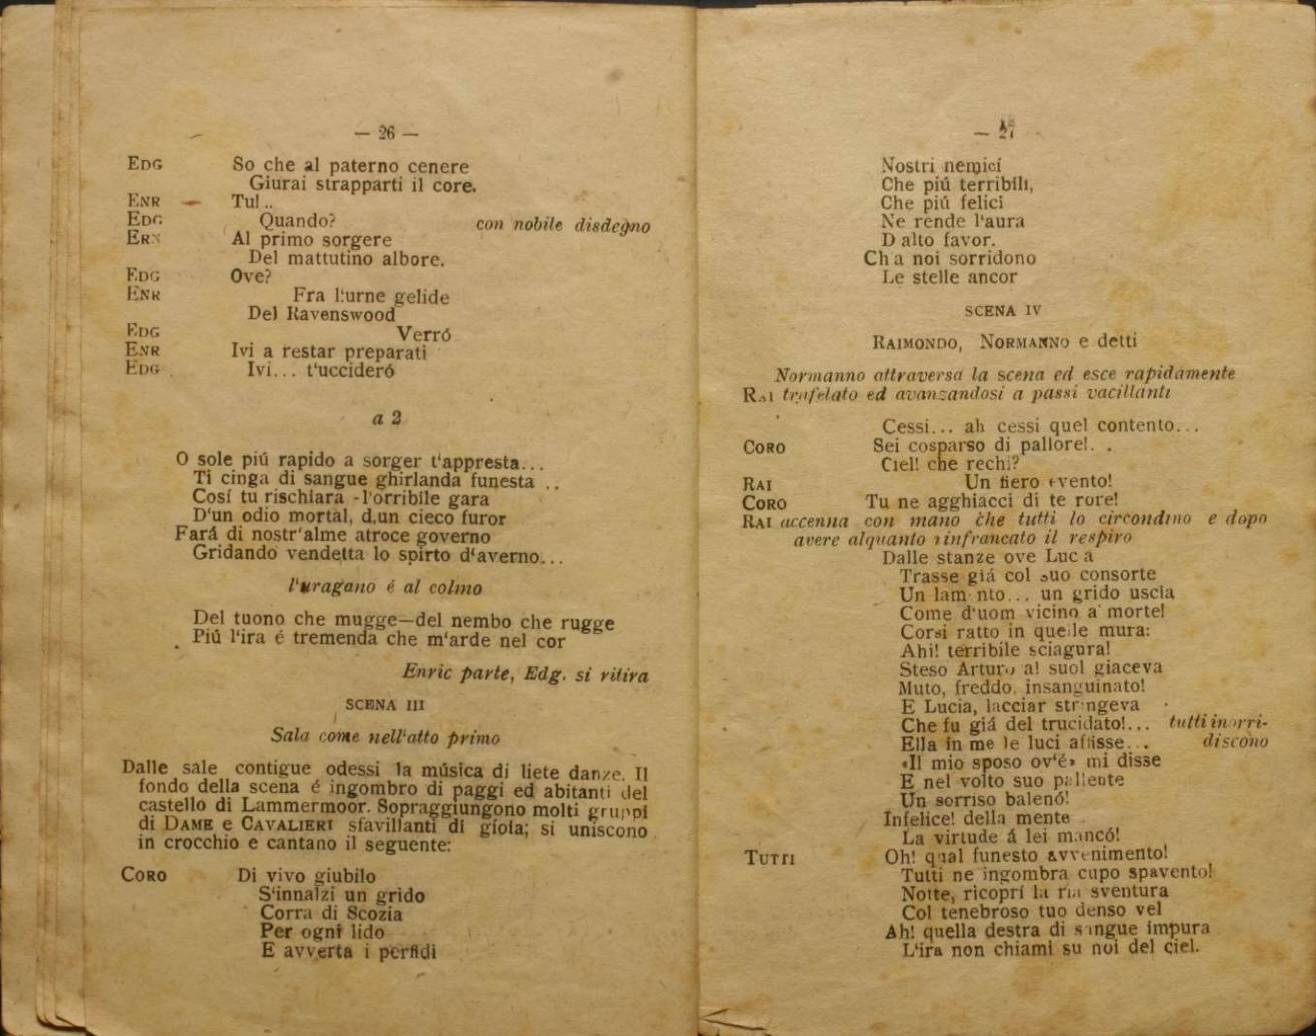 — 26 —
EDG So che al paterno cenere
Giurai strapparti il core.
ENR Tu!..
EDG Quando? con nobile disdegno
ERN Al primo sorgere
Del mattutino albore.
EDG Ove?
ENR Fra l'urne gelide
Del Ravenswood
EDG Verró
ENR Ivi a restar preparati
EDG Ivi... t'uccideró
a 2
O sole piú rapido a sorger t'appresta...
Ti cinga di sangue ghirlanda funesta ..
Cosí tu rischiara -l'orribile gara
D'un odio mortal, d,un cieco furor
Fará di nostr'alme atroce governo
Gridando vendetta lo spirto d'averno...
l'uragano é al colmo
Del tuono che mugge—del nembo che rugge
Piú l'ira é tremenda che m'arde nel cor
Enric parte, Edg. si ritira
SCENA III
Sala come nell'atto primo
Dalle sale contigue odessi la música di liete danze. Il
fondo della scena é ingombro di paggi ed abitanti del
castello di Lammermoor. Sopraggiungono molti gruppi
di DAME e CAVALIERI sfavillanti di gioia; si uniscono
in crocchio e cantano il seguente:
CORO Di vivo giubilo
S'innalzi un grido
Corra di Scozia
Per ogni lido
E avverta i perfidi
— 27
Nostri nemici
Che piú terribili,
Che piú felici
Ne rende l'aura
D alto favor.
Ch a noi sorridono
Le stelle ancor
SCENA IV
RAIMONDO, NORMANNO e detti
Normanno attraversa la scena ed esce rapidamente
RAI trafelato ed avanzandosi a passi vacillanti
Cessi... ah cessi quel contento...
CORO Sei cosparso di pallore!. .
Ciel! che rechi?
RAI Un fiero evento!
CORO Tu ne agghiacci di te rore!
RAI accenna con mano che tutti lo circondino e dopo
avere alquanto rinfrancato il respiro
Dalle stanze ove Luc a
Trasse giá col suo consorte
Un lam nto... un grido uscia
Come d'uom vicino a morte!
Corsi ratto in quelle mura:
Ahi! terribile sciagura!
Steso Arturo al suol giaceva
Muto, freddo, insanguinato!
E Lucia, lacciar stringeva
Che fu giá del trucidato!... tutti inorri-
Ella in me le luci affisse... discono
«Il mio sposo ov'é» mi disse
E nel volto suo pallente
Un sorriso balenó!
Infelice! della mente
La virtude á lei mancó!
TUTTI Oh! qual funesto avvenimento!
Tutti ne ingombra cupo spavento!
Notte, ricoprí la ria sventura
Col tenebroso tuo denso vel
Ah! quella destra di sangue impura
L'ira non chiami su noi del ciel.